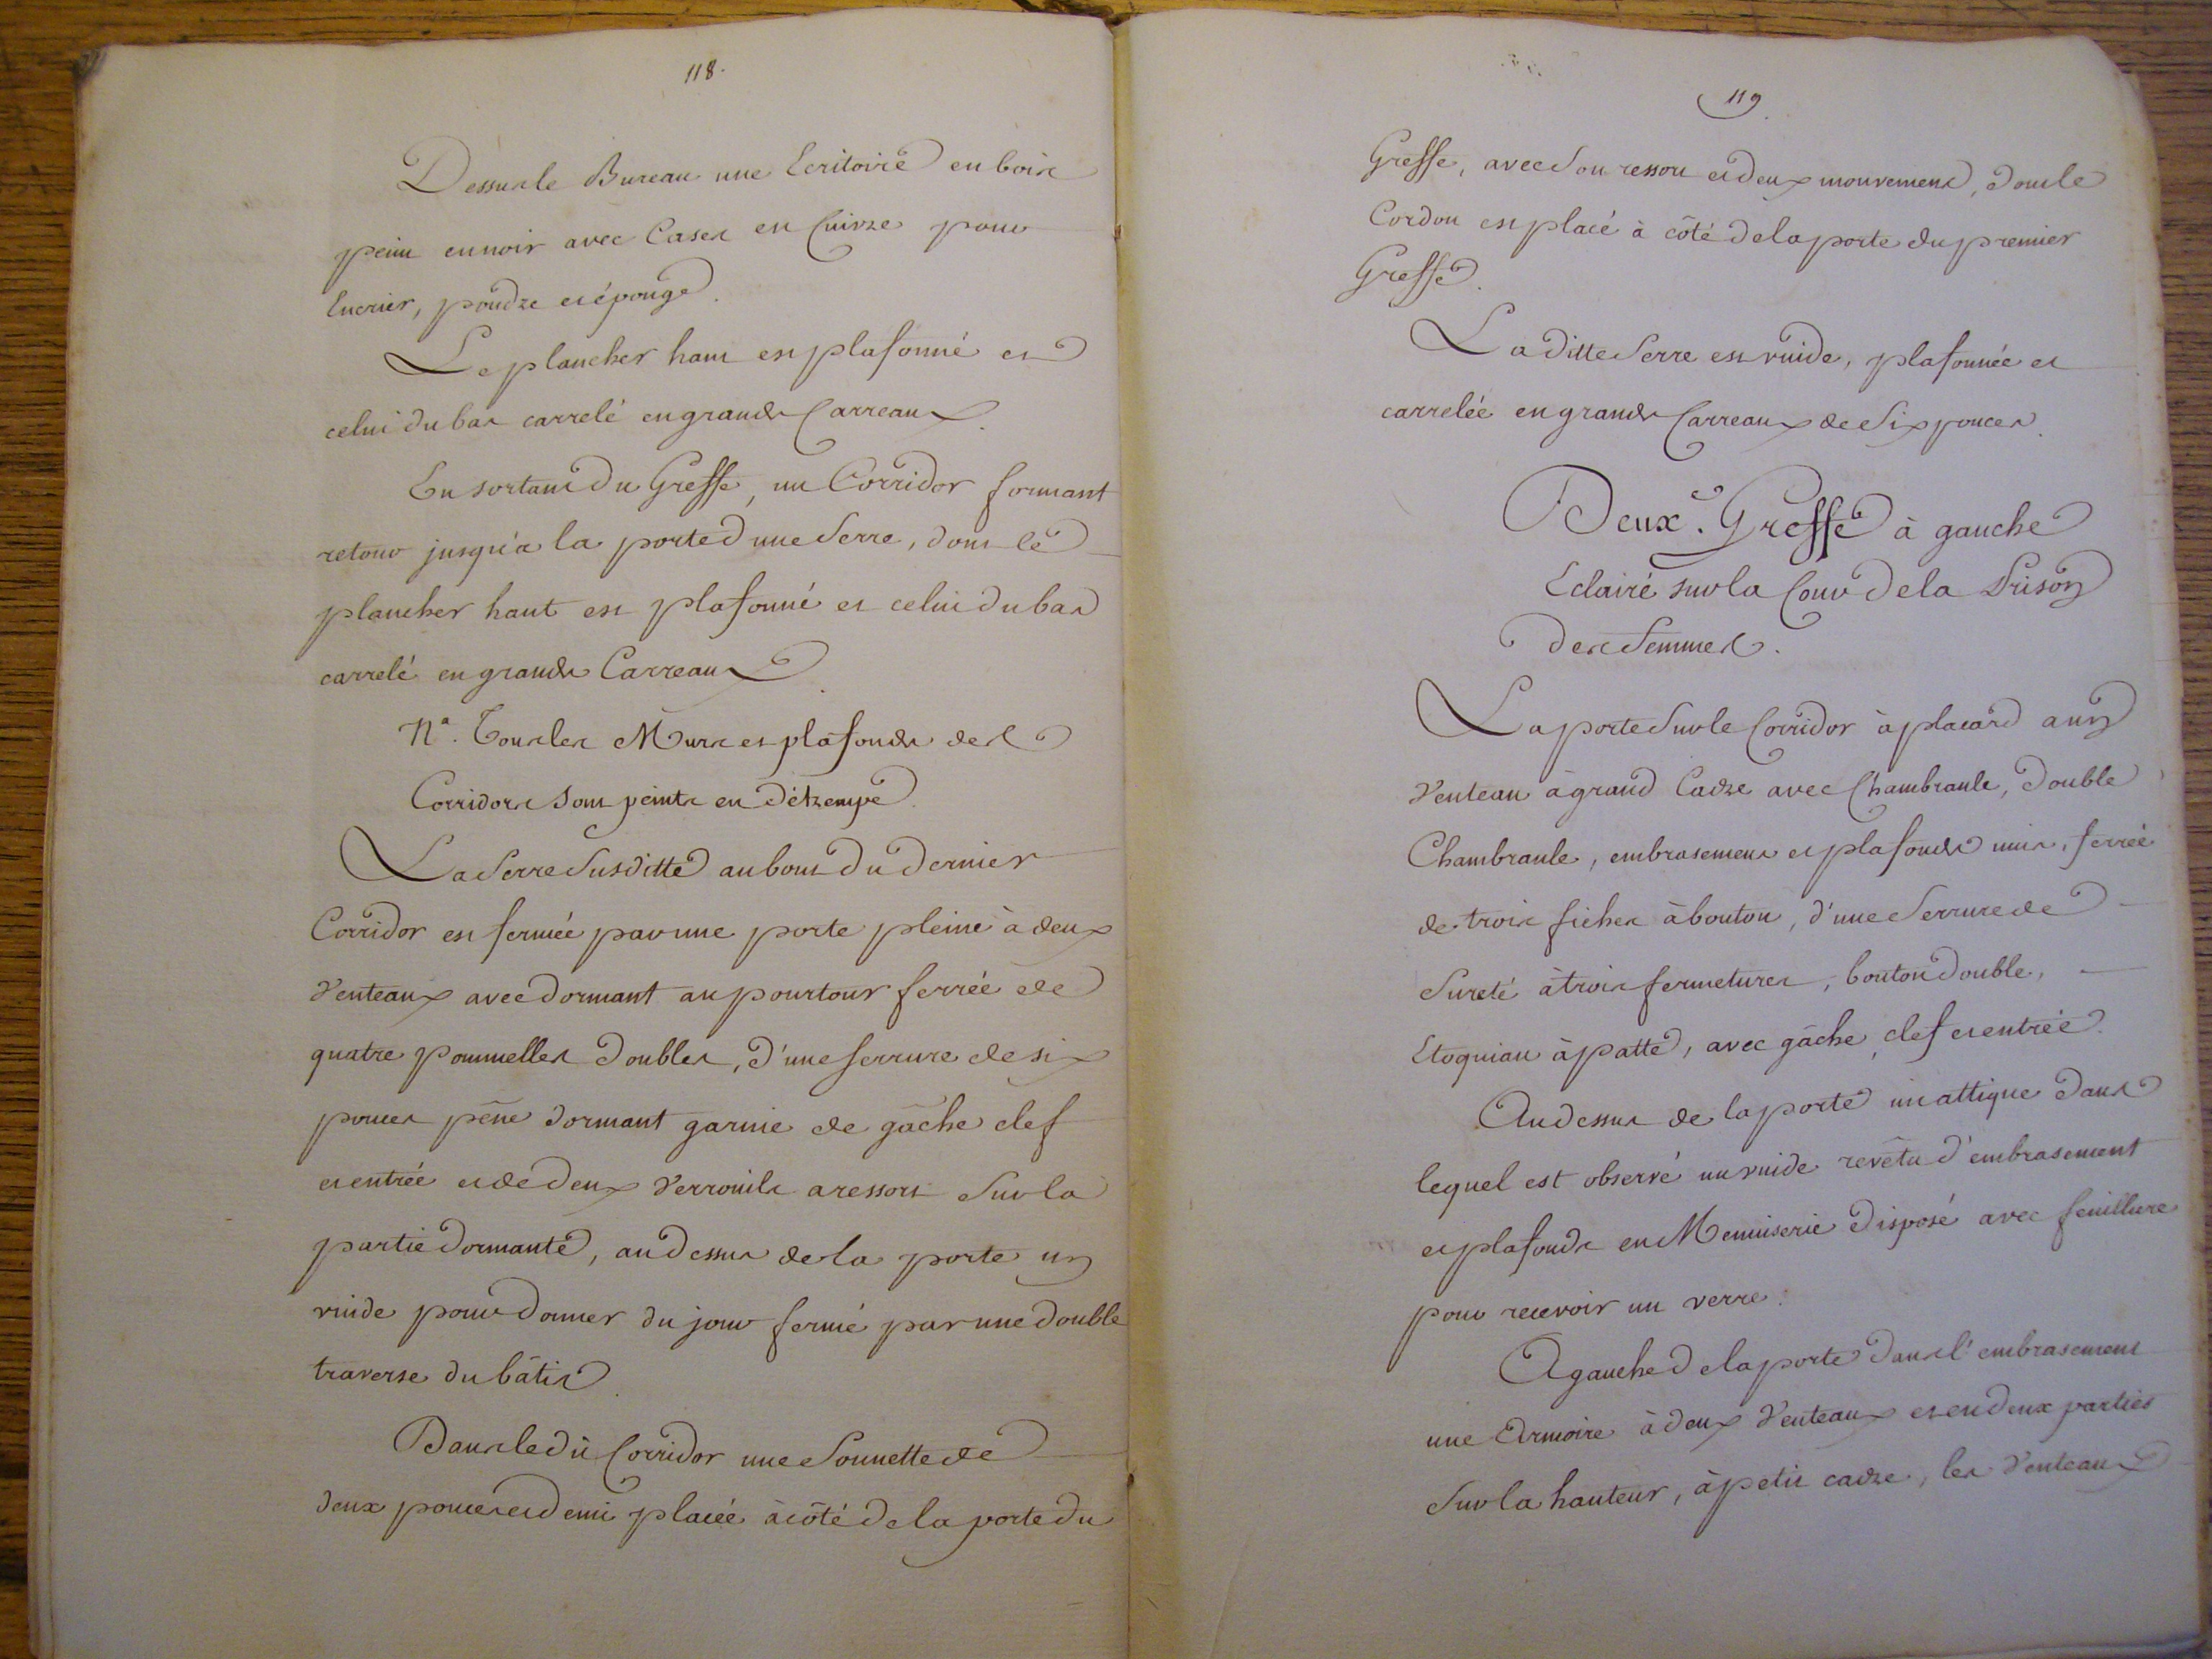 118.
Dessus le Bureau une Ecritoire en bois
peint en noir avec Cases en Cuivre pour
Encrier, poudre et éponge.
Le plancher haut est plafonné et
celui du bas carrelé en grands Carreaux.
En sortant du Greffe, un Corridor formant
retour jusqu'a la porte d'une Serre, dont le
plancher haut est plafonné et celui du bas
carrelé en grands Carreaux.
Na. Tous les Murs et plafonds des
Corridors sont peints en détrempe.
La Serre Susditte au bout du dernier
Corridor est fermée par une porte pleine à deux
Venteaux avec dormant au pourtour ferrée de
quatre pommelles doubles, d'une serrure de six
pouces pêne dormant garnie de gâche clef
et entrée et de deux Verrouils a ressort Sur la
partie dormante, au dessus de la porte un
vuide pour donner du jour fermé par une double
traverse du bâtis.
Dans le dit Corridor une Sonnette de
deux pouces et demi placée à côté de la porte du
119.
Greffe, avec Son ressort et deux mouvemens, dont le
Cordon est placé à côté de la porte du premier
Greffe.
La ditte Serre est vuide, plafonnée et
carrelée en grands Carreaux de Six pouces.
Deux.e Greffe à gauche
Eclairé sur la Cour de la Prison
des Femmes.
La porte Sur le Corridor à placard a un
Venteau à grand Cadre avec Chambranle, double
Chambranle, embrasemens et plafonds unis, ferrée
de trois fiches à bouton, d'une Serrure de
Sureté à trois fermetures, bouton double,
Etoquiau à patte, avec gâche, clef et entrée.
Au dessus de la porte un attique dans
lequel est observé un vuide revêtu d'embrasement
et plafonds en Menuiserie disposé avec feuillure
pour recevoir un verre.
A gauche de la porte dans l'embrasement
une Armoire à deux Venteaux et en deux parties
Sur la hauteur, à petit cadre, les Venteaux